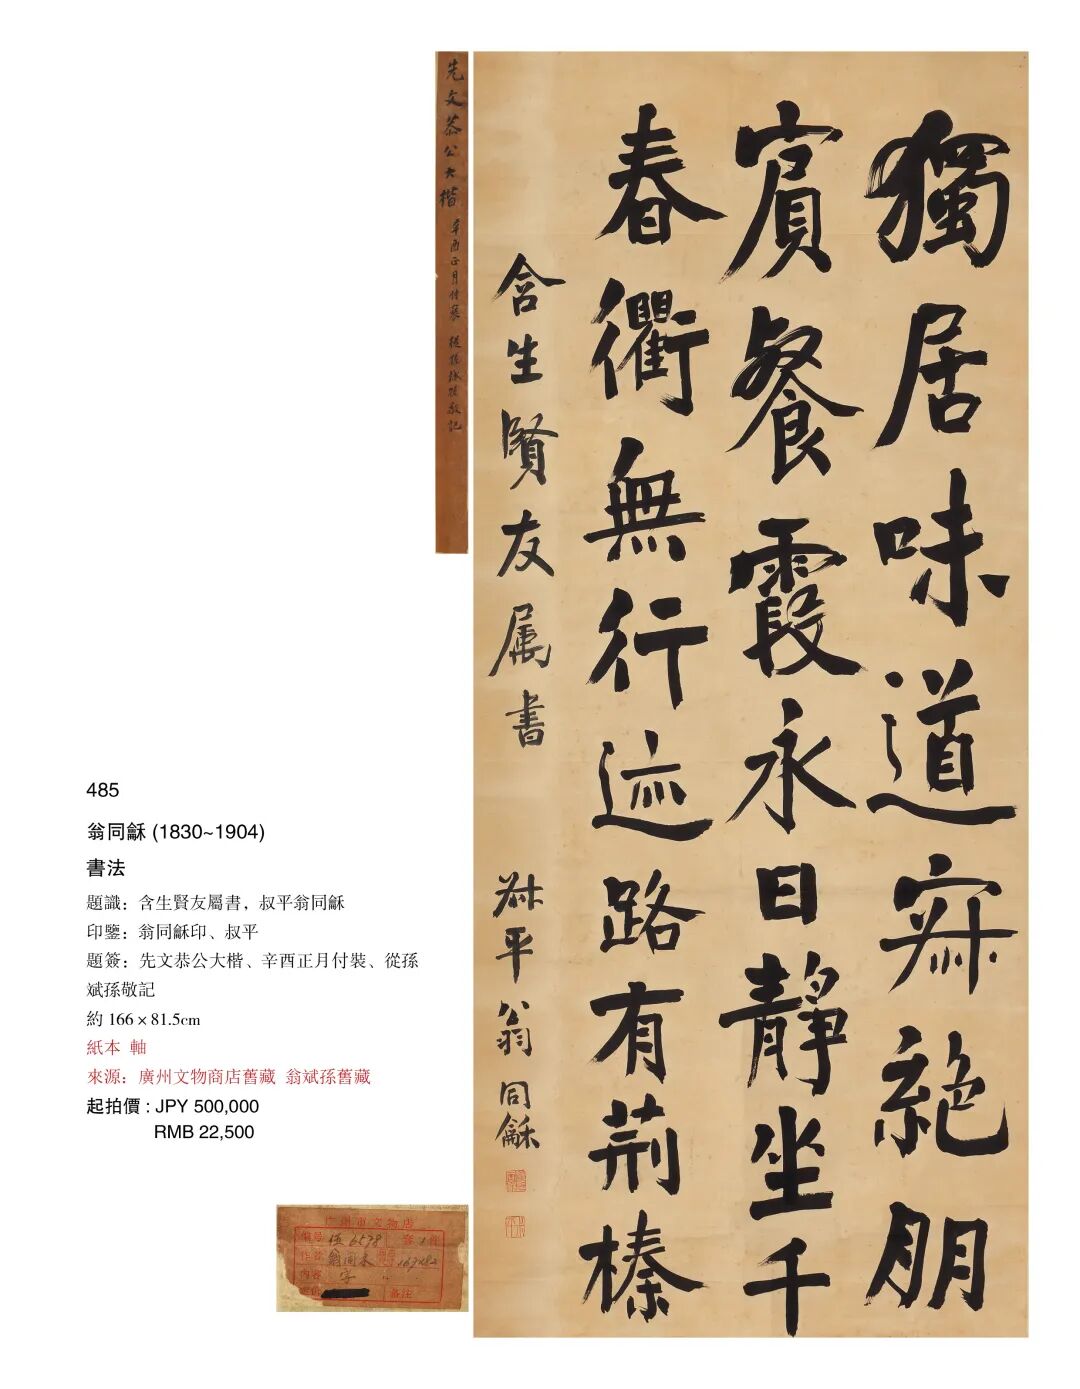 先文恭公大楷 辛酉正月付裝 從孫斌孫敬記
獨居味道寂絕朋
賓餐霞永日靜坐千
春衢無行迹路有荊榛
含生賢友属書
叔平翁同龢
485
翁同龢 (1830~1904)
書法
題識：含生賢友屬書，叔平翁同龢
印鑒：翁同龢印、叔平
題簽：先文恭公大楷、辛酉正月付裝、從孫
斌孫敬記
約 166 × 81.5cm
紙本 軸
來源：廣州文物商店舊藏 翁斌孫舊藏
起拍價 : JPY 500,000
RMB 22,500
广州市文物店
编号 伍6578 套1件
作者 翁同禾 167×82
内容 字
备注